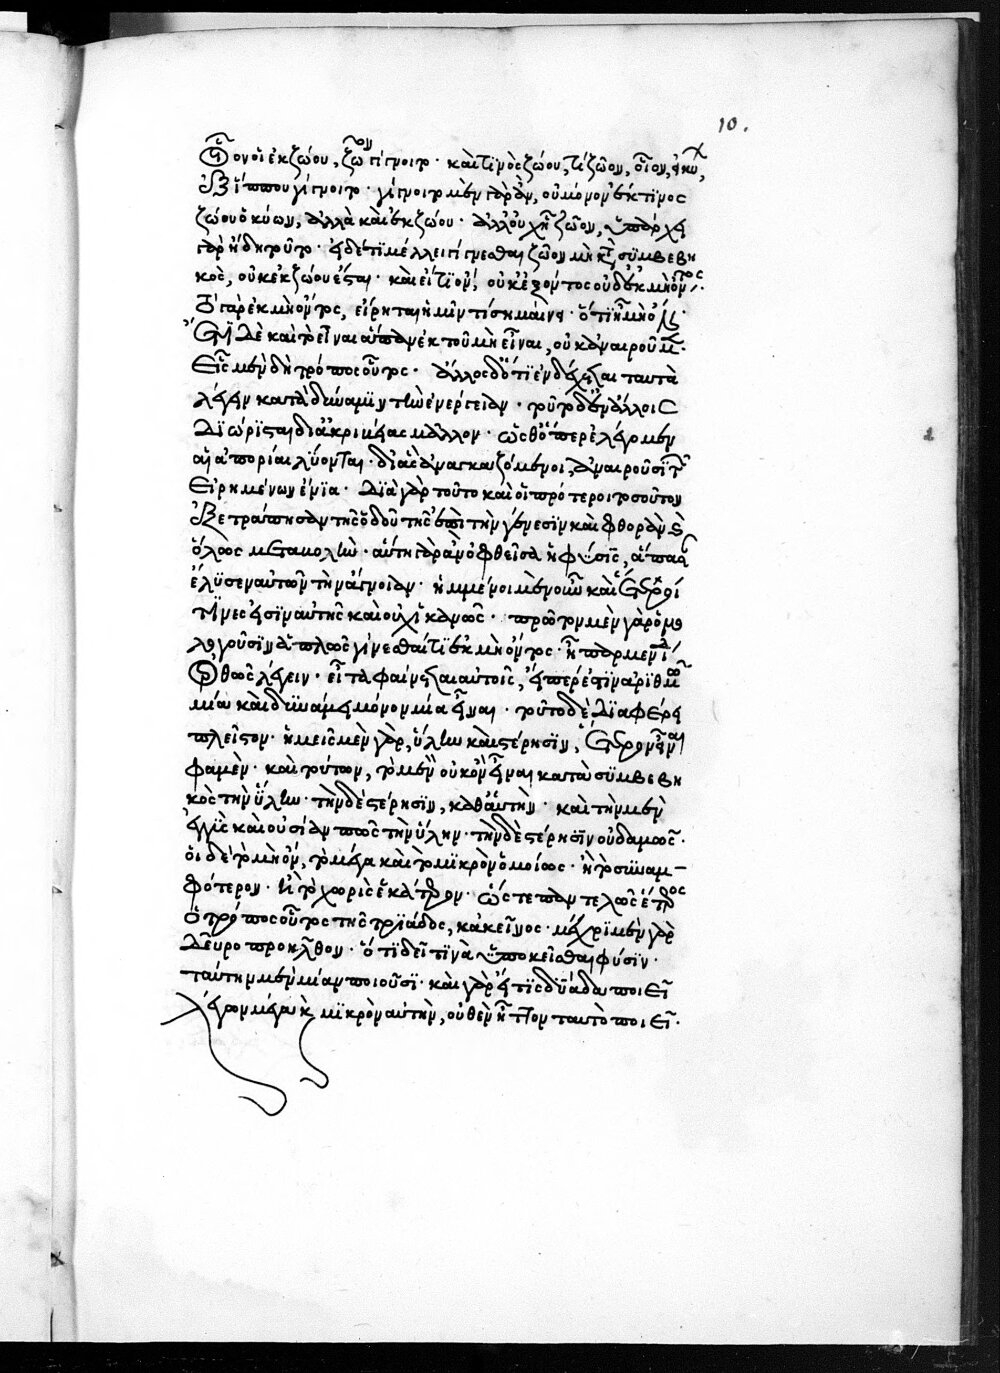 10.
ὃν οἱ ἐκ ζώου, ζῶον γίγνοιτο· καὶ τινὸς ζώου, τὶ ζῶον, οἷον, εἰ κύων,
ἐξ ἵππου γίγνοιτο· γίγνοιτο μὲν γὰρ ἂν, οὐ μόνον ἐκ τινος
ζώου ὁ κύων, ἀλλὰ καὶ ἐκ ζώου· ἀλλ' οὐχ ᾗ ζῶον, ὑπάρχει
γὰρ ἤδη τοῦτο· εἰ δέ τι μέλλει γίγνεσθαι ζῶον μὴ κατὰ συμβεβη
κὸς, οὐκ ἐκ ζώου ἔσται· καὶ εἴ τι ὂν, οὐκ ἐξ ὄντος οὐδ' ἐκ μὴ ὄντος·
τὸ γὰρ ἐκ μὴ ὄντος, εἴρηται ἡμῖν τί σημαίνει· ὅτι ᾗ μὴ ὄν·
ἔτι δὲ καὶ τὸ εἶναι ἅπαν ἐκ τοῦ μὴ εἶναι, οὐκ ἀναιροῦμεν·
εἷς μὲν δὴ τρόπος οὗτος· ἄλλος δ' ὅτι ἐνδέχεται ταυτὰ
λέγειν κατὰ δύναμιν τὴν ἐνέργειαν· τοῦτο δ' ἐν ἄλλοις
διώρισται δι' ἀκριβείας μᾶλλον· ὥσθ' ὅπερ ἐλέγομεν
αἱ ἀπορίαι λύονται· δι' ἃς ἀναγκαζόμενοι, ἀναιροῦσι τῶν
εἰρημένων ἔνια· διὰ γὰρ τοῦτο καὶ οἱ πρότεροι τοσοῦτον
ἐξετράπησαν τῆς ὁδοῦ τῆς ἐπὶ τὴν γένεσιν καὶ φθορὰν καὶ
ὅλως μεταβολὴν· αὕτη γὰρ ἂν ὀφθεῖσα ἡ φύσις, ἅπασαν
ἔλυσεν αὐτῶν τὴν ἄγνοιαν· ἡμμένοι μὲν οὖν καὶ ἕτεροί
τινες εἰσὶν αὐτῆς καὶ οὐχ ἱκανῶς· πρῶτον μὲν γὰρ ὁμο
λογοῦσιν ἁπλῶς γίνεσθαί τι ἐκ μὴ ὄντος· ᾗ παρμενίδην
ὀρθῶς λέγειν· εἶτα φαίνεται αὐτοῖς, εἴπερ ἐστὶν ἀριθμῷ
μία καὶ δυνάμει μόνον μία εἶναι· τοῦτο δὲ διαφέρει
πλεῖστον· ἡμεῖς μὲν γὰρ, ὕλην καὶ στέρησιν, ἕτερον εἶναι
φαμὲν· καὶ τούτων, τὸ μὲν οὐκ ὂν εἶναι κατὰ συμβεβη
κὸς τὴν ὕλην· τὴν δὲ στέρησιν, καθ' αὑτὴν· καὶ τὴν μὲν
ἐγγὺς καὶ οὐσίαν πως τὴν ὕλην· τὴν δὲ στέρησιν οὐδαμῶς·
οἱ δὲ τὸ μὴ ὂν, τὸ μέγα καὶ τὸ μικρὸν ὁμοίως· ἢ τὸ συναμ-
φότερον· ἢ τὸ χωρὶς ἑκάτερον· ὥστε παντελῶς ἕτερος
ὁ τρόπος οὗτος τῆς τριάδος, κἀκεῖνος· μέχρι μὲν γὰρ
δεῦρο προῆλθον· ὅτι δεῖ τινὰ ὑποκεῖσθαι φύσιν·
ταύτην μὲν μίαν ποιοῦσι· καὶ γὰρ εἴ τις δυάδα ποιεῖ
λέγων μέγα καὶ μικρὸν αὐτὴν, οὐθὲν ἧττον ταυτὸ ποιεῖ·